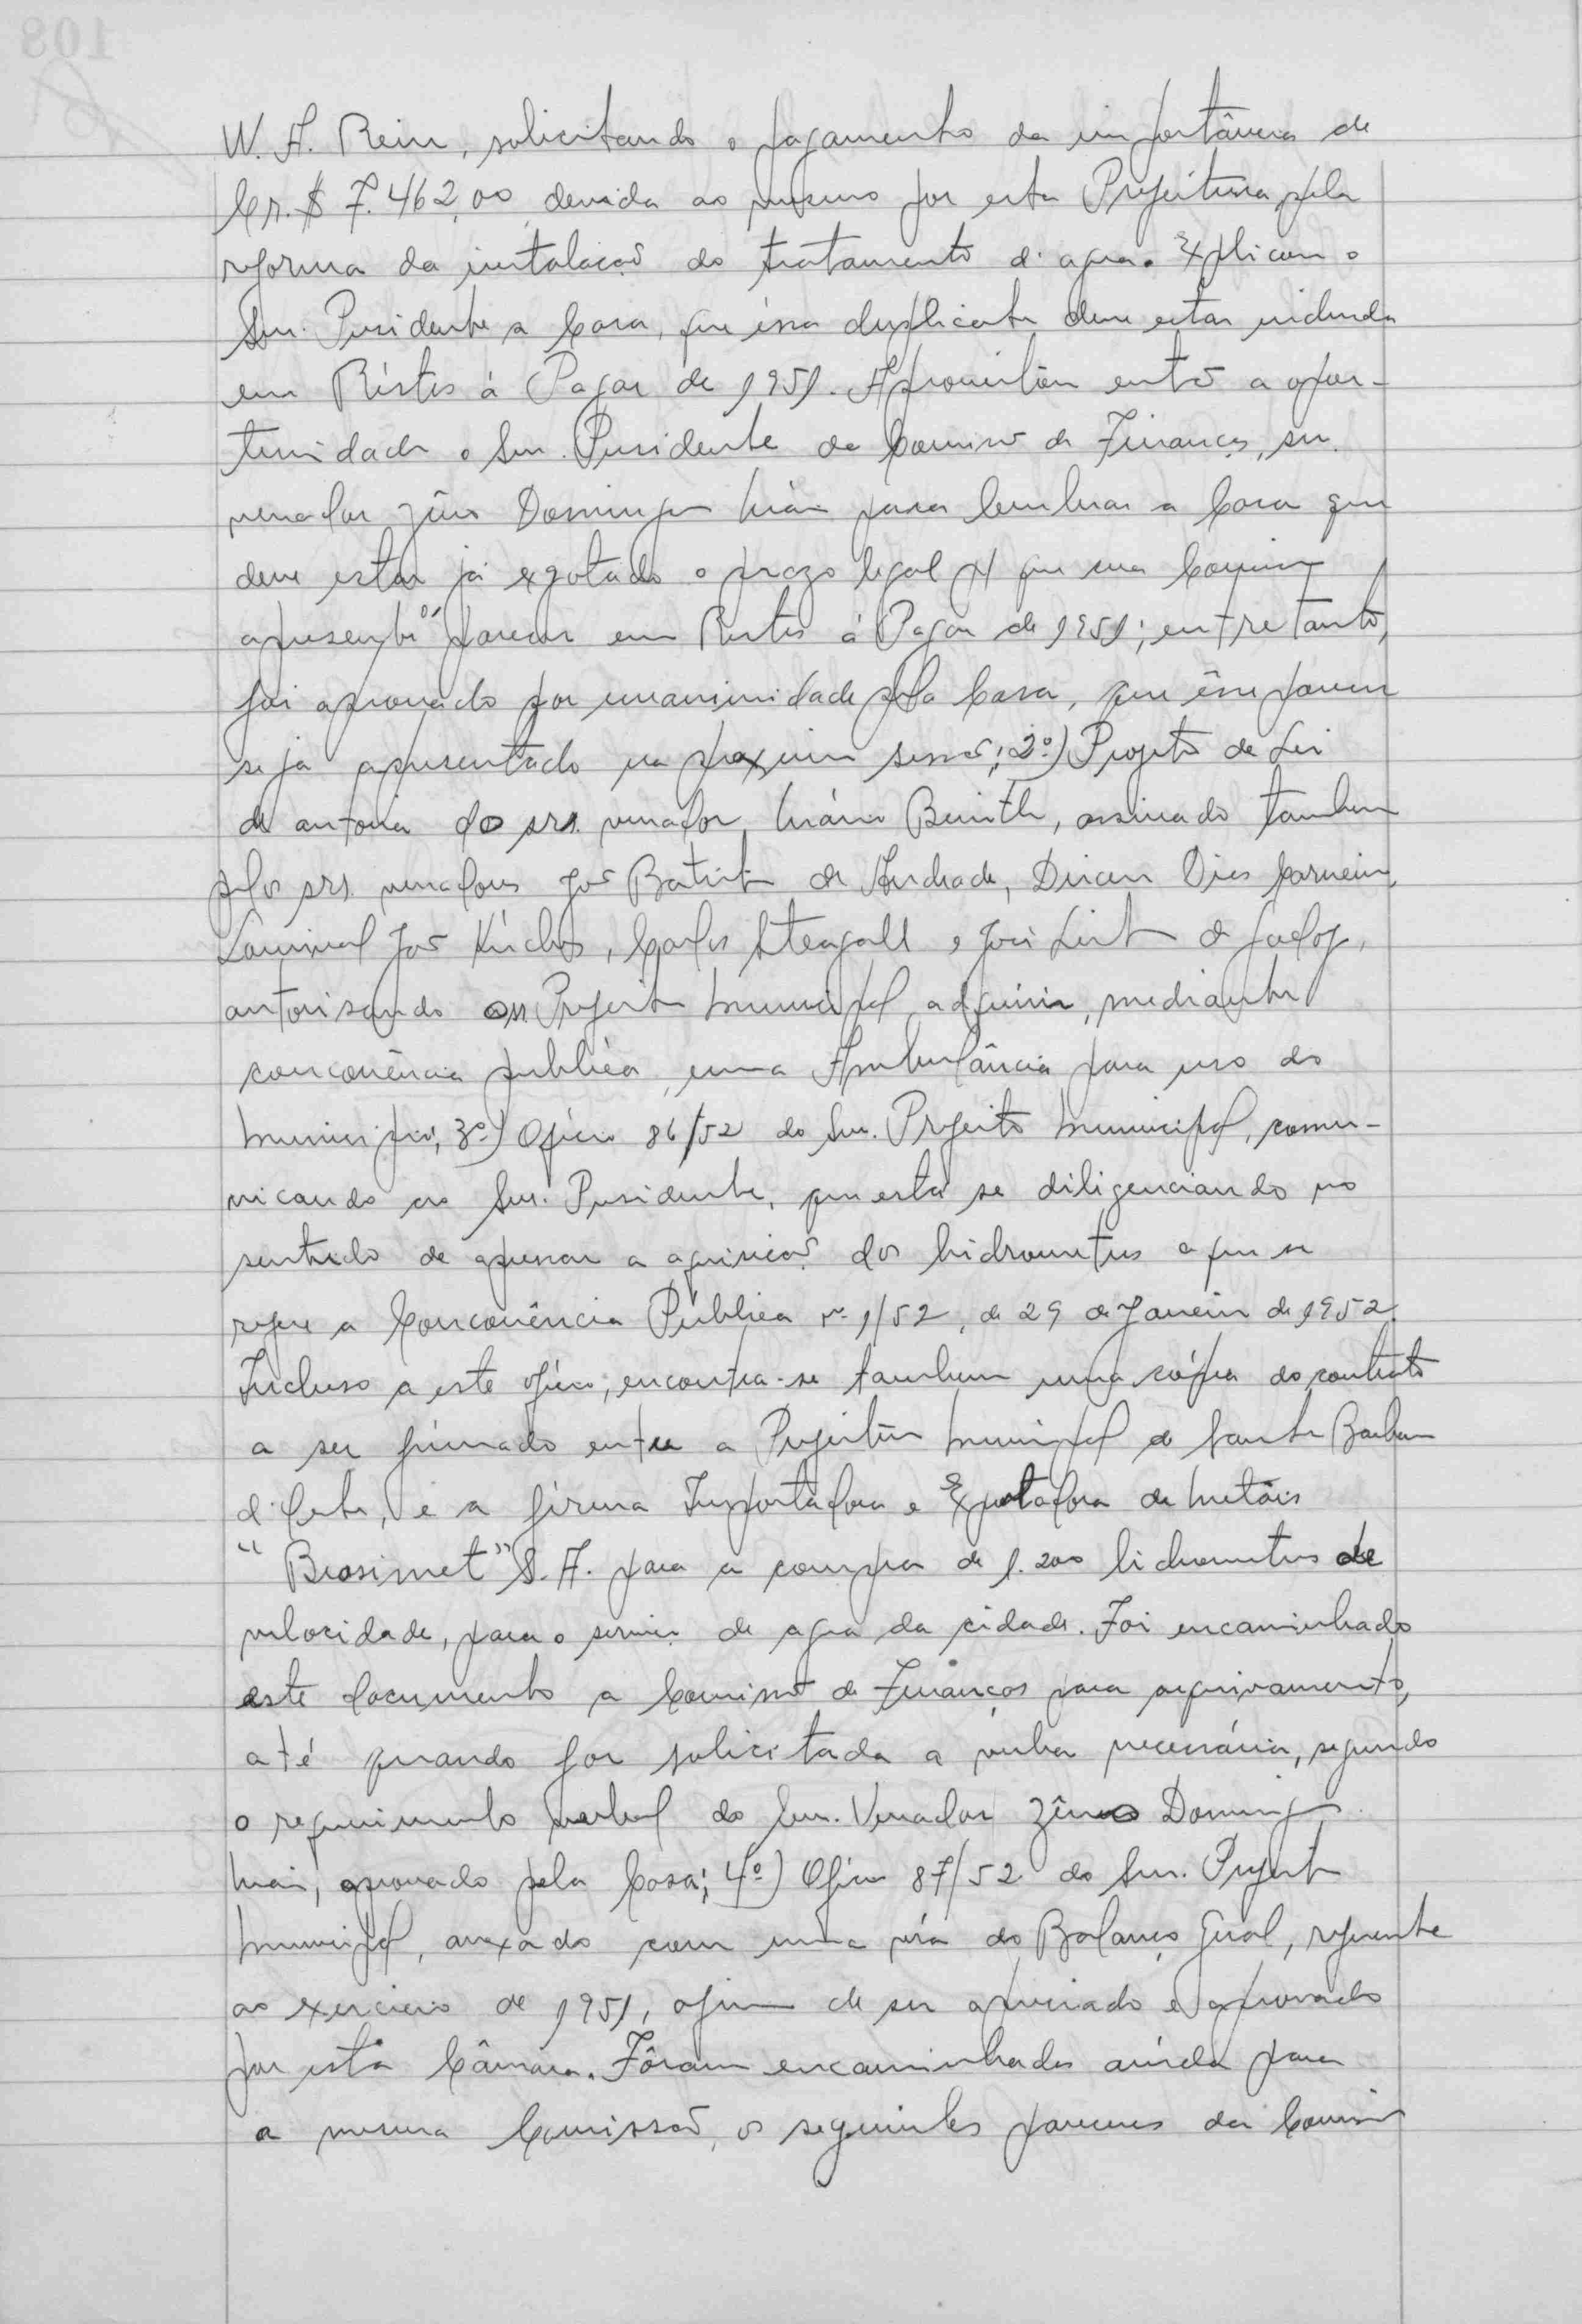 W. A. Rein, solicitando o pagamento da importância de
Cr.$ 7.462,00 devida ao mesmo por esta Prefeitura pela
reforma da instalação do tratamento d'agua. Explicou o
Snr. Presidente a Casa, que éssa duplicata deve estar incluida
em Réstos á Pagar de 1951. Aproveitou então a opor-
tunidade o Snr. Presidente da Comissão de Finanças, snr.
vereador Zêno Domingos Maia para lembrar a Casa que
deve estar já exgotado o prazo legal p/ que sua Comissão
apresente parecer em Restos á Pagar de 1951; entretanto,
foi aprovado por unanimidade pela Casa, que êsse parecer
seja apresentado na proxima sessão; 2º) Projeto de Lei
de autoria do snr. vereador Mário Beinith, assinado tambem
pelos srs. vereadores José Batista de Andrade, Dirceu Dias Carneiro,
Lourival José, Carlos Steagall e José de Godoy,
autorisando o sr. Prefeito Municipal adquirir, mediante
concorrência publica, uma Ambulância para uso do
Municipio; 3º) Oficio 86/52 do Snr. Prefeito Municipal, comu-
nicando ao Snr. Presidente, que está se diligenciando no
sentido de apressar a aquisição dos hidrometros a que se
refere a Concorrência Pública nº 1/52, de 29 de Janeiro de 1952.
Incluso a este ofício, encontra-se tambem uma cópia do contrato
a ser firmado entre a Prefeitura Municipal de Santa Barbara
d'Oeste, e a firma Importadora e Exportadora de Metais
"Brasimet" S.A. para a compra de 1.200 hidrometros de
velocidade, para o serviço de agua da cidade. Foi encaminhado
este documento a Comissão de Finanças para arquivamento,
até quando for solicitada a verba necessária, segundo
o requerimento verbal do Snr. Vereador Zêno Domingos
Maia, aprovado pela Casa; 4º) Ofício 87/52 do Snr. Prefeito
Municipal, anexado com uma via do Balanço Geral, referente
ao exercicio de 1951, afim de ser apreciado e aprovado
por esta Câmara. Fôram encaminhados ainda para
a mesma Comissão, os seguintes pareceres da Comissão